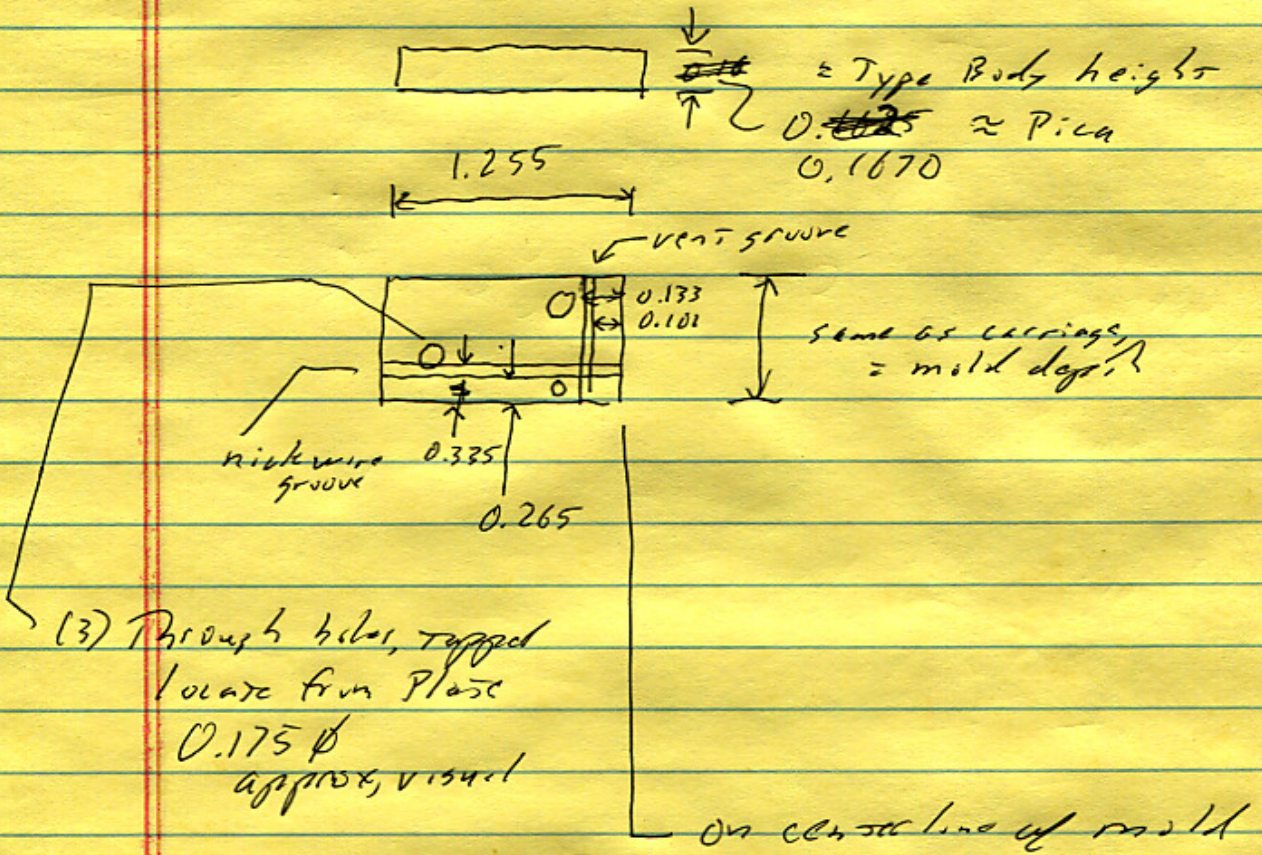 = Type Body height
≈ Pica
0.1670
1.255
vent groove
0.133
0.101
same as carriage,
= mold depth
nick wire
groove
0.335
0.265
(3) Through holes, tapped
locate from Plate
0.175 ϕ
approx, visual
on center line of mold